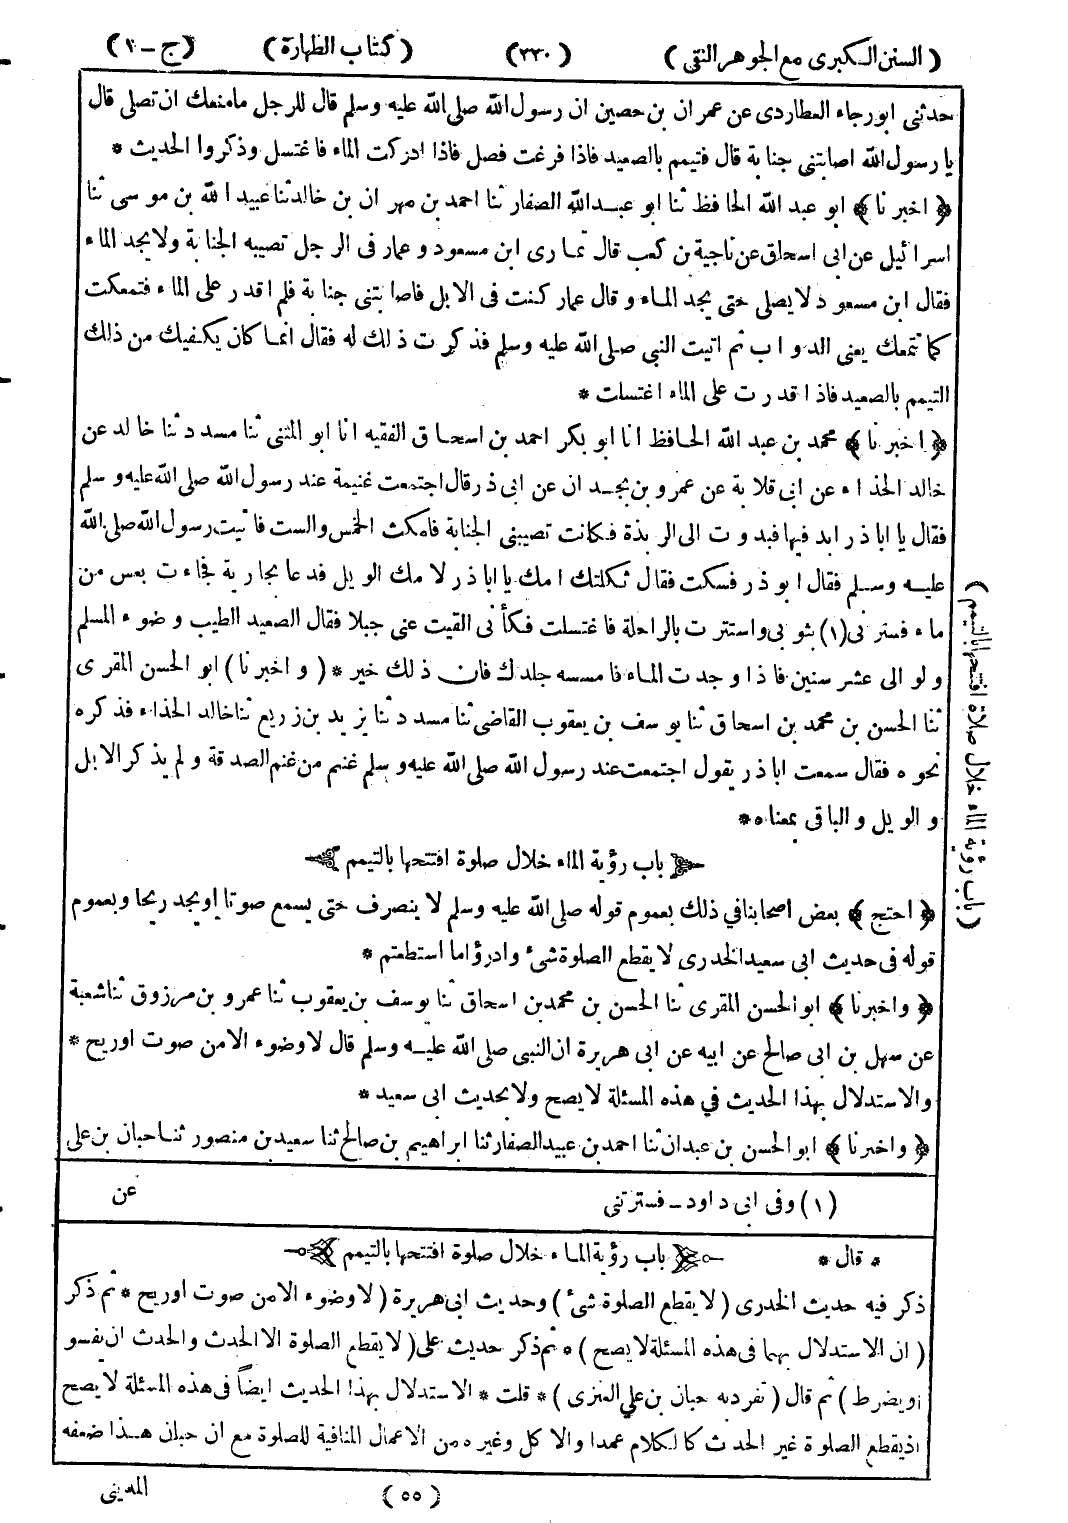 ( السنن الكبرى مع الجوهر النقى ) (٢٢٠) ( كتاب الطهارة ) (ج-١)
حدثنى ابورجاء العطاردى عن عمران بن حصين ان رسول الله صلى الله عليه وسلم قال للرجل مامنعك ان تصلى قال
يا رسول الله اصابتنى جنابة قال فتيمم بالصعيد فاذا فرغت فصل فاذا ادركت الماء فاغتسل وذكروا الحديث *
﴿ اخبرنا ﴾ ابو عبد الله الحافظ ثنا ابو عبد الله الصفار ثنا احمد بن مهران بن خالد ثنا عبيد الله بن موسى ثنا
اسرائيل عن ابى اسحاق عن ناجية بن كعب قال تمارى ابن مسعود وعمار فى الرجل تصيبه الجنابة ولا يجد الماء
فقال ابن مسعود لا يصلى حتى يجد الماء وقال عمار كنت فى الابل فاصابتنى جنابة فلم اقدر على الماء فتمعكت
كما تتمعك يعنى الدواب ثم اتيت النبى صلى الله عليه وسلم فذكرت ذلك له فقال انما كان يكفيك من ذلك
التيمم بالصعيد فاذا قدرت على الماء اغتسلت *
﴿ اخبرنا ﴾ محمد بن عبد الله الحافظ انا ابو بكر احمد بن اسحاق الفقيه انا ابو المثنى ثنا مسدد ثنا خالد عن
خالد الحذاء عن ابى قلابة عن عمرو بن بجدان عن ابى ذر قال اجتمعت غنيمة عند رسول الله صلى الله عليه وسلم
فقال يا اباذر ابد فيها فبدوت الى الربذة فكانت تصيبنى الجنابة فامكث الخمس والست فاتيت رسول الله صلى الله
عليه وسلم فقال ابوذر فسكت فقال ثكلتك امك يا اباذر لامك الويل فدعا بجارية فجاءت بعس من
ماء فسترنى (١) بثوبى واستترت بالراحلة فاغتسلت فكأنى القيت عنى جبلا فقال الصعيد الطيب وضوء المسلم
ولو الى عشر سنين فاذا وجدت الماء فامسسه جلدك فان ذلك خير * ( واخبرنا ) ابو الحسن المقرى
ثنا الحسن بن محمد بن اسحاق ثنا يوسف بن يعقوب القاضى ثنا مسدد ثنا يزيد بن زريع ثنا خالد الحذاء فذكره
نحوه فقال سمعت اباذر يقول اجتمعت عند رسول الله صلى الله عليه وسلم غنم من غنم الصدقة ولم يذكر الابل
والويل والباقى بمعناه *
باب رؤية الماء خلال صلوة افتتحها بالتيمم
﴿ احتج ﴾ بعض اصحابنا في ذلك بعموم قوله صلى الله عليه وسلم لا ينصرف حتى يسمع صوتا او يجد ريحا وبعموم
قوله فى حديث ابى سعيد الخدرى لا يقطع الصلوة شئ وادرؤا ما استطعتم *
﴿ واخبرنا ﴾ ابو الحسن المقرى ثنا الحسن بن محمد بن اسحاق ثنا يوسف بن يعقوب ثنا عمرو بن مرزوق ثنا شعبة
عن سهل بن ابى صالح عن ابيه عن ابى هريرة ان النبى صلى الله عليه وسلم قال لا وضوء الا من صوت او ريح *
والاستدلال بهذا الحديث في هذه المسئلة لا يصح ولا بحديث ابى سعيد *
﴿ واخبرنا ﴾ ابو الحسن بن عبدان ثنا احمد بن عبيد الصفار ثنا ابراهيم بن صالح ثنا سعيد بن منصور ثنا حبان بن على
عن
( باب رؤية الماء خلال صلاة افتتحها بالتيمم )
(١) وفى ابى داود - فسترتنى
* قال * باب رؤية الماء خلال صلوة افتتحها بالتيمم
ذكر فيه حديث الخدرى ( لا يقطع الصلوة شئ ) وحديث ابى هريرة ( لا وضوء الا من صوت او ريح * ثم ذكر
( ان الاستدلال بهما فى هذه المسئلة لا يصح ) * ثم ذكر حديث على ( لا يقطع الصلوة الا الحدث والحدث ان يفسو
او يضرط ) ثم قال ( تفرد به حبان بن علي العنزى ) * قلت * الاستدلال بهذا الحديث ايضاً فى هذه المسئلة لا يصح
اذ يقطع الصلوة غير الحدث كالكلام عمدا والاكل وغيره من الاعمال المنافية للصلوة مع ان حبان هذا ضعفه
(٥٥) المدينى